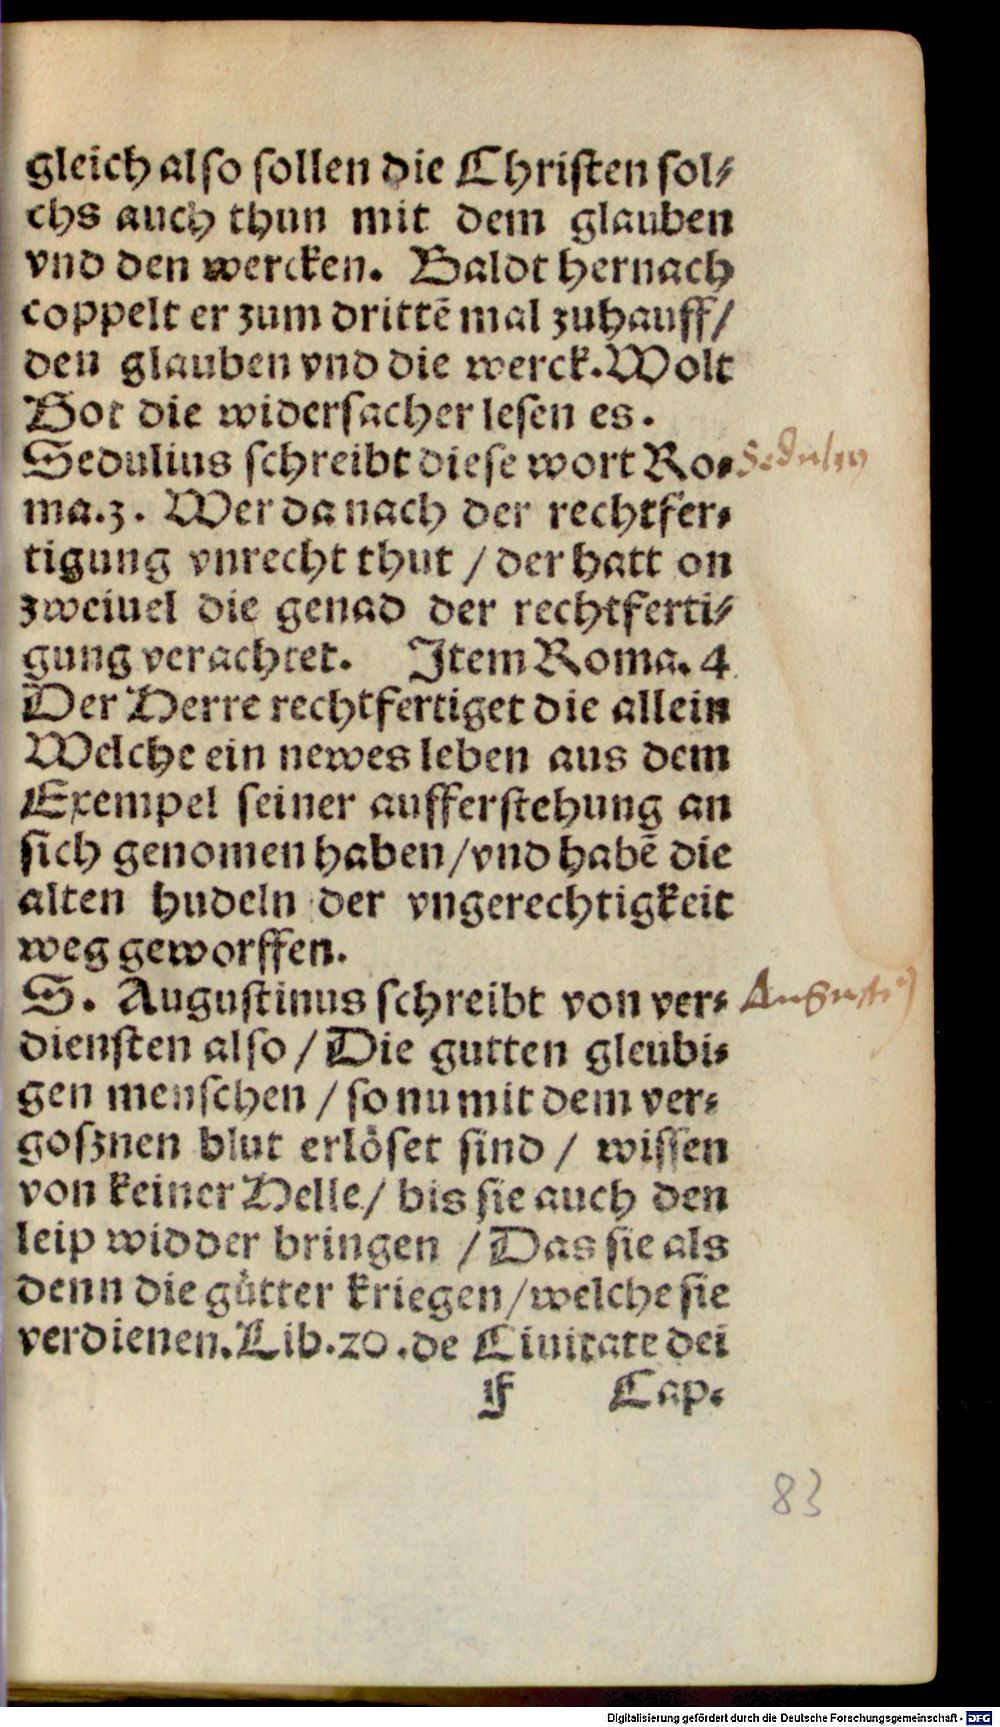 gleich also sollen die Christen sol⸗
chs auch thun mit dem glauben
vnd den wercken. Baldt hernach
coppelt er zum drittē mal zuhauff/
den glauben vnd die werck. Wolt
Got die widersacher lesen es.
Sedulius schreibt diese wort Ro⸗ Sedulius
ma.3. Wer da nach der rechtfer⸗
tigung vnrecht thut / der hatt on
zweiuel die genad der rechtferti⸗
gung verachtet. Item Roma. 4
Der Herre rechtfertiget die allein
Welche ein newes leben aus dem
Exempel seiner aufferstehung an
sich genomen haben/vnd habē die
alten hudeln der vngerechtigkeit
weg geworffen.
S. Augustinus schreibt von ver⸗ Augusti⁹
diensten also / Die gutten gleubi⸗
gen menschen / so nu mit dem ver⸗
gosznen blut erlöset sind / wissen
von keiner Helle/ bis sie auch den
leip widder bringen / Das sie als
denn die gütter kriegen/welche sie
verdienen. Lib.20.de Ciuitate dei
F Cap.
83
Digitalisierung gefördert durch die Deutsche Forschungsgemeinschaft - DFG